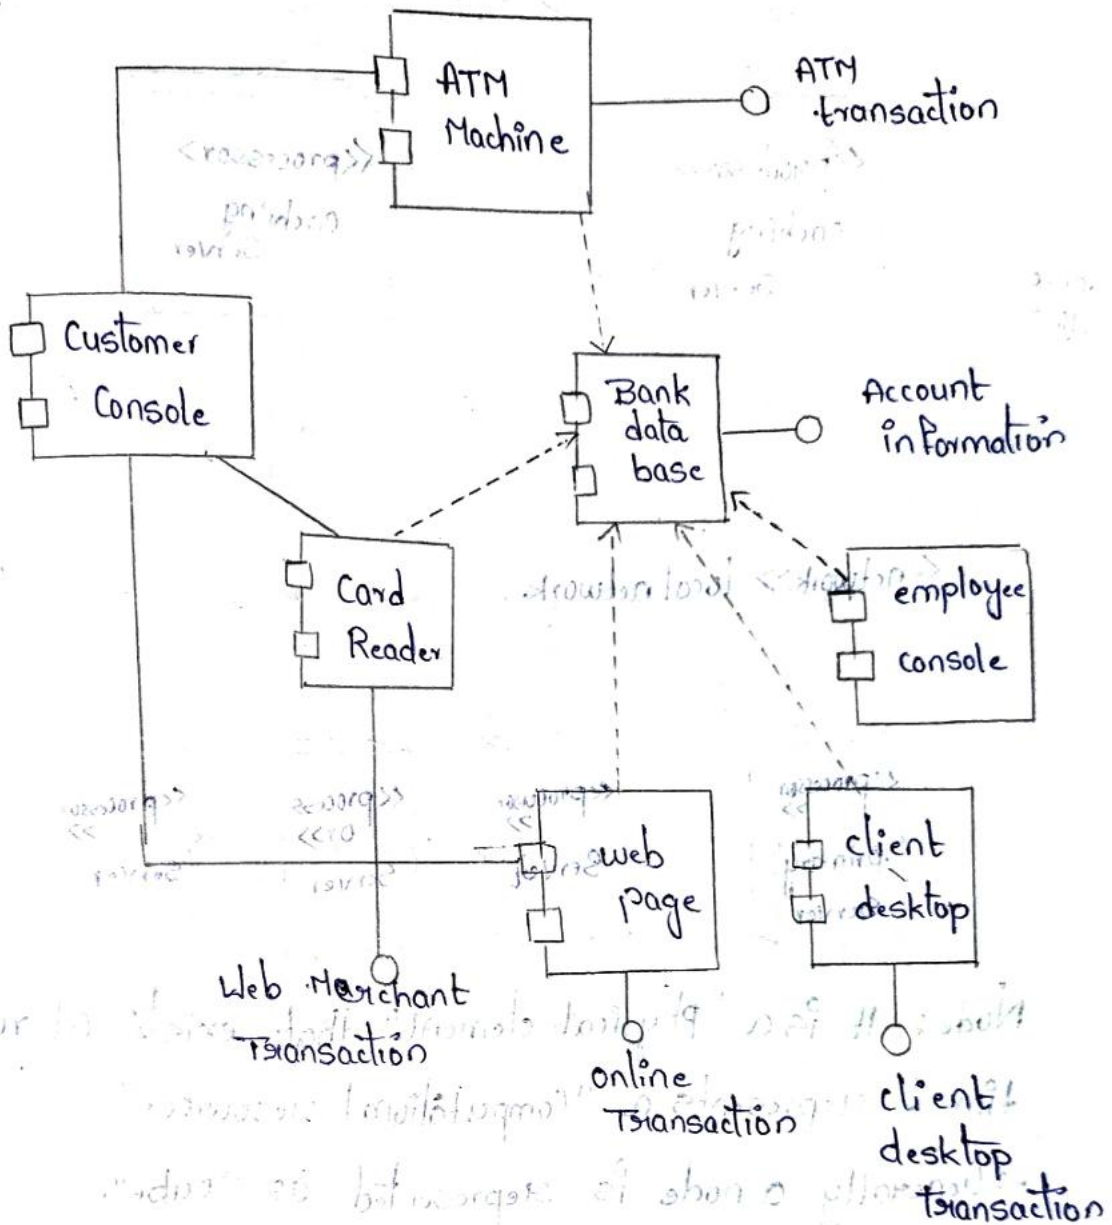 ATM
Machine
ATM
transaction
Customer
Console
Bank
data
base
Account
information
Card
Reader
employee
console
web
page
client
desktop
Web Merchant
Transaction
online
Transaction
client
desktop
transaction